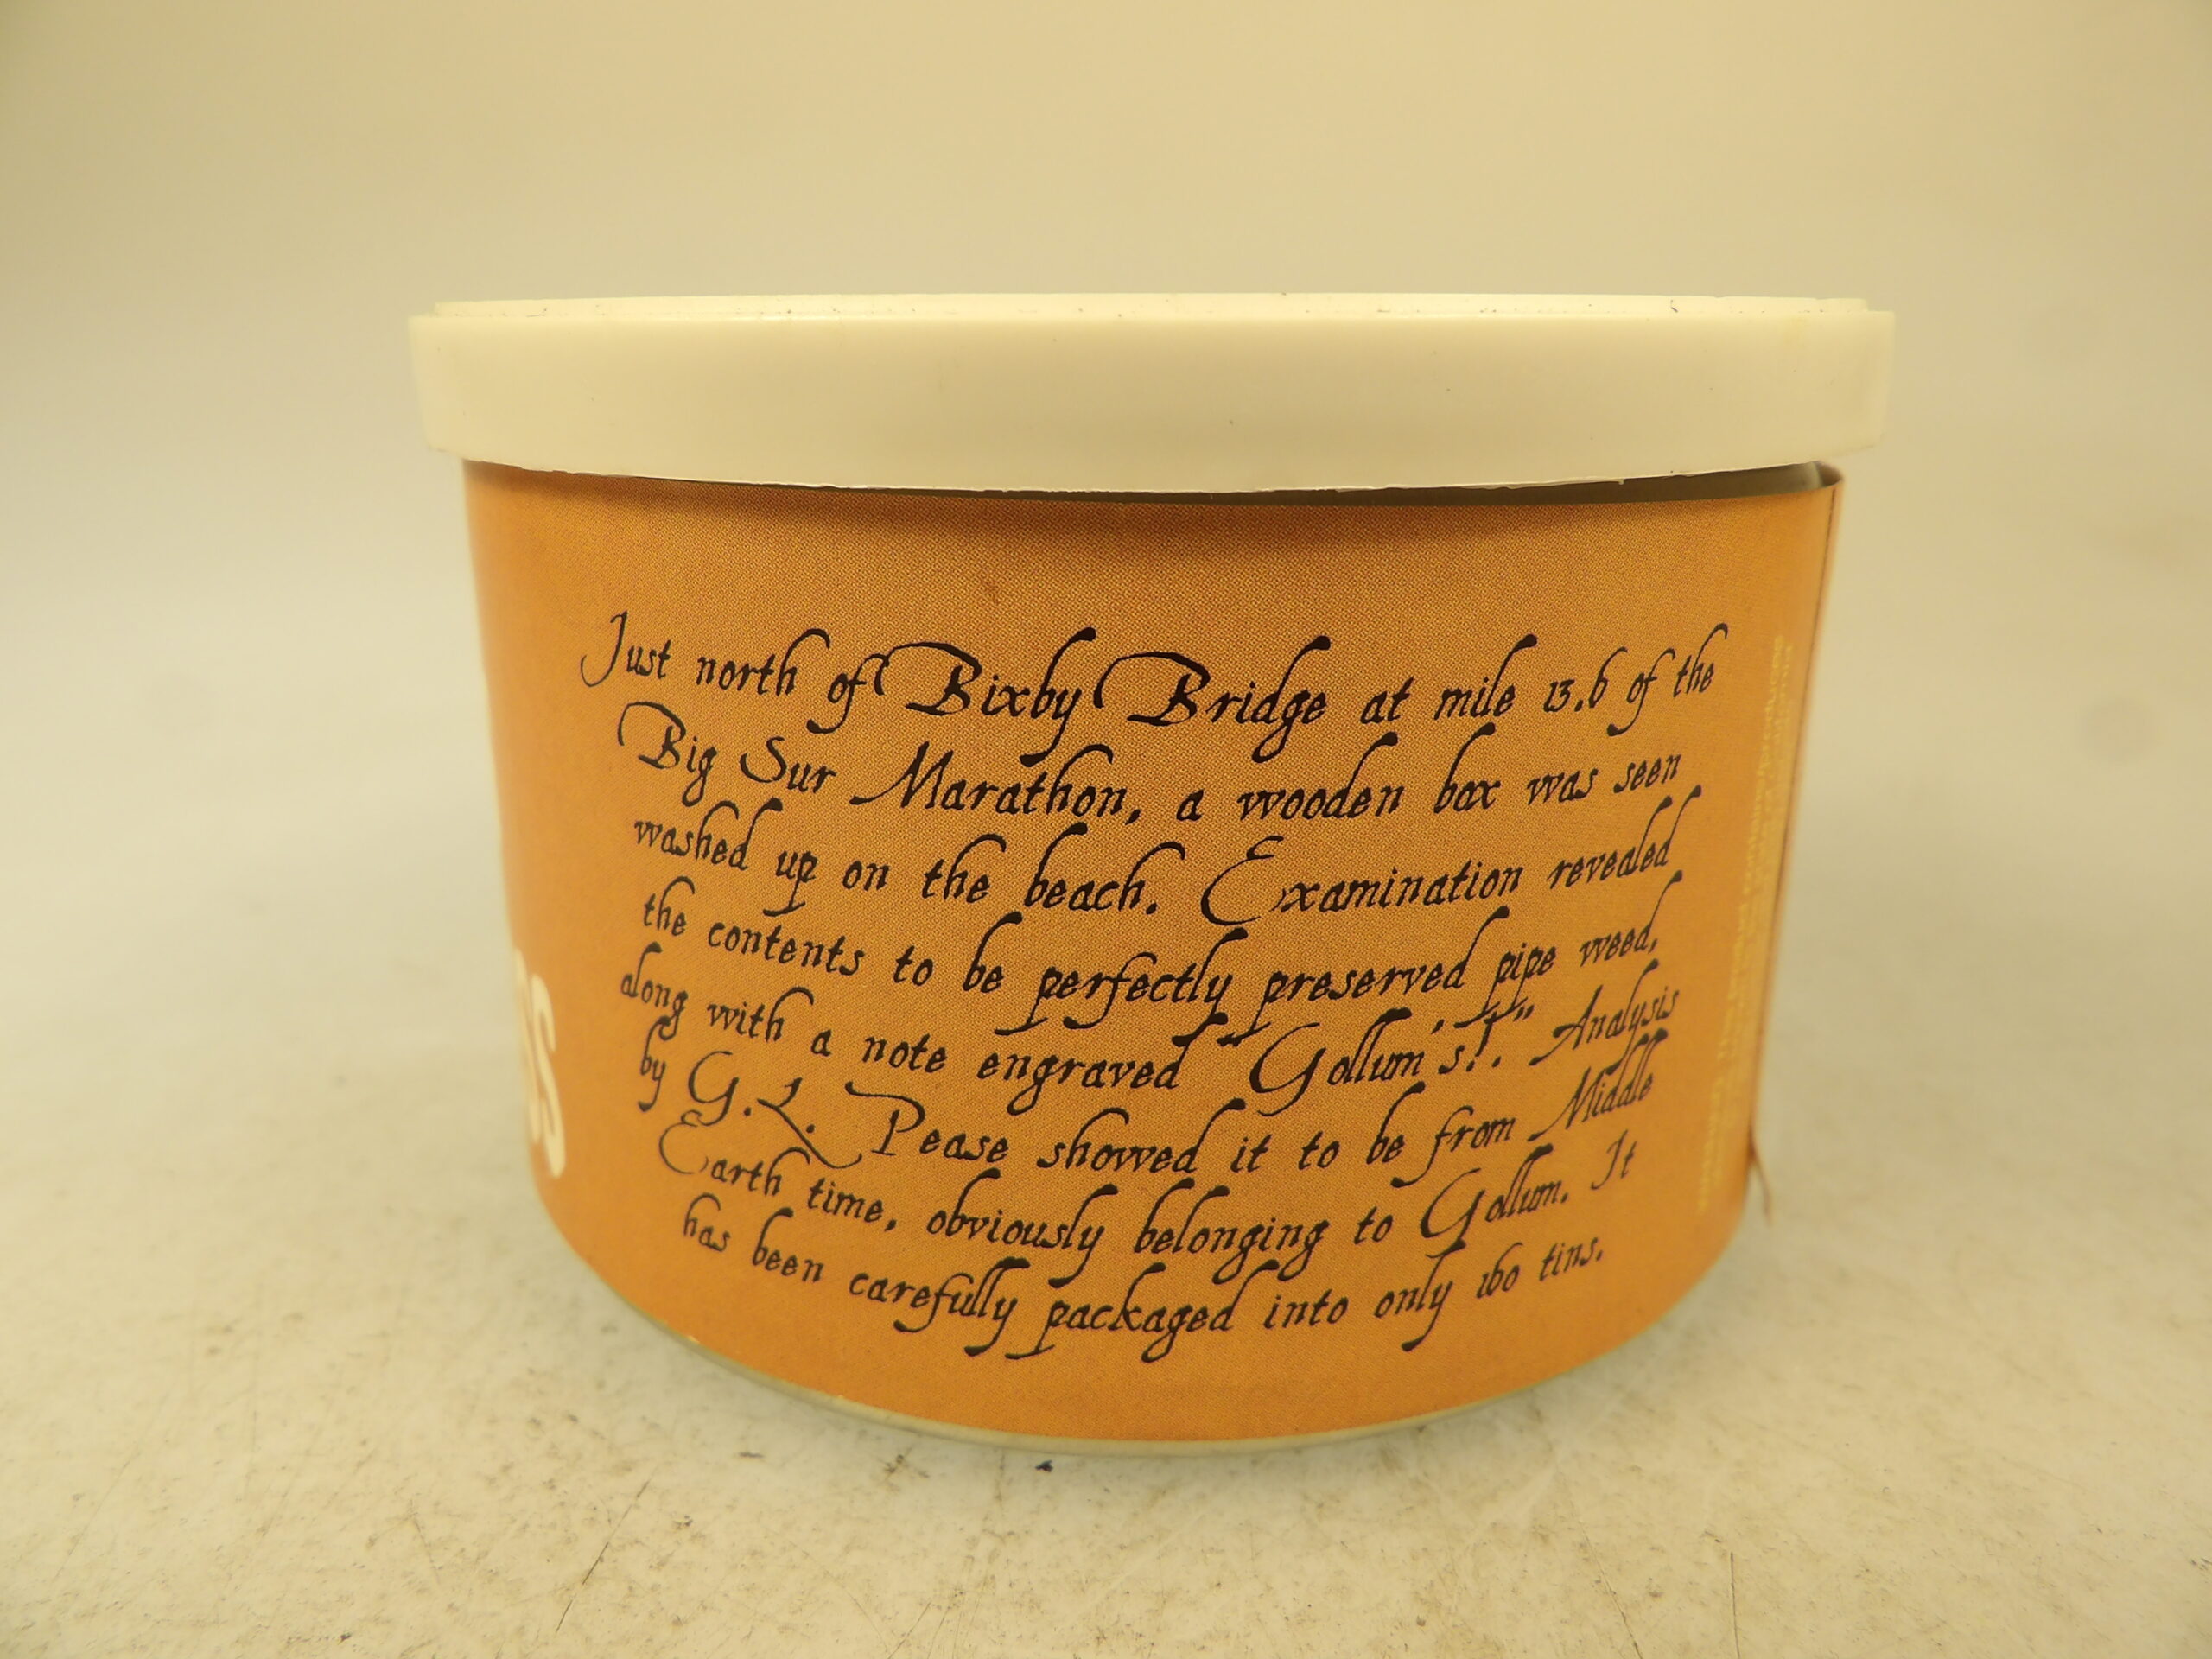 Just north of Bixby Bridge at mile 13.6 of the
Big Sur Marathon, a wooden box was seen
washed up on the beach. Examination revealed
the contents to be perfectly preserved pipe weed,
along with a note engraved "Gollum's!." Analysis
by G.L. Pease showed it to be from Middle
Earth time, obviously belonging to Gollum. It
has been carefully packaged into only 160 tins.